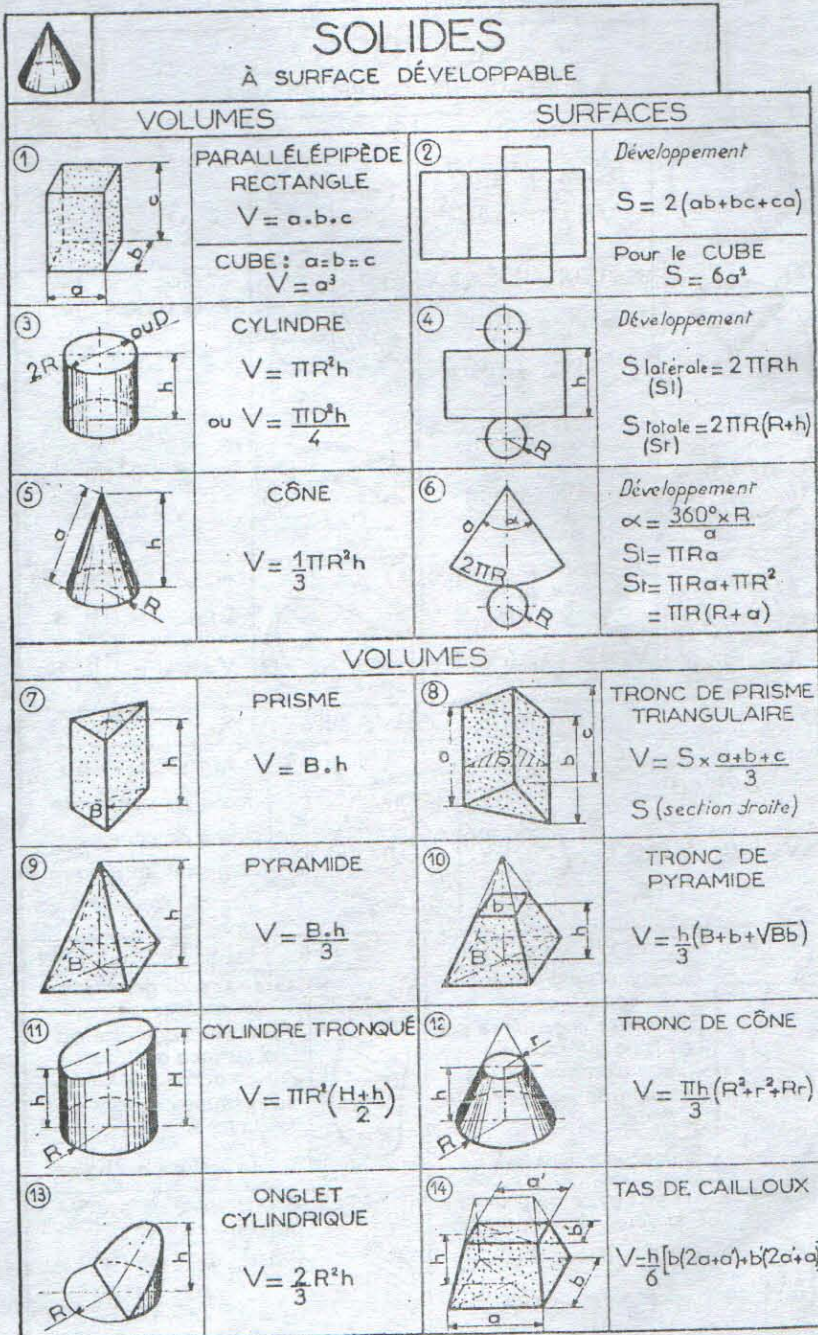 SOLIDES
À SURFACE DÉVELOPPABLE
VOLUMES
SURFACES
①
a
b
c
PARALLÉLÉPIPÈDE
RECTANGLE
V = a.b.c
CUBE: a=b=c
V = a³
②
Développement
S = 2(ab+bc+ca)
Pour le CUBE
S = 6a²
③
2R ou D
h
CYLINDRE
V = πR²h
ou V = πD²h/4
④
h
R
Développement
S latérale = 2πRh
(Sl)
S totale = 2πR(R+h)
(St)
⑤
a
h
R
CÔNE
V = 1/3 πR²h
⑥
a
α
2πR
R
Développement
α = 360°×R/a
Sl = πRa
St = πRa+πR²
= πR(R+a)
VOLUMES
⑦
h
B
PRISME
V = B.h
⑧
a
S
b
c
TRONC DE PRISME
TRIANGULAIRE
V = S × a+b+c/3
S (section droite)
⑨
h
B
PYRAMIDE
V = B.h/3
⑩
b
h
B
TRONC DE
PYRAMIDE
V = h/3 (B+b+√Bb)
⑪
h
H
R
CYLINDRE TRONQUÉ
V = πR²(H+h/2)
⑫
r
h
R
TRONC DE CÔNE
V = πh/3 (R²+r²+Rr)
⑬
h
R
ONGLET
CYLINDRIQUE
V = 2/3 R²h
⑭
a'
b'
h
b
a
TAS DE CAILLOUX
V = h/6 [b(2a+a')+b'(2a'+a)]